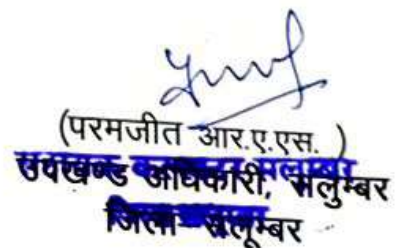 (परमजीत आर.ए.एस. )
उपखण्ड अधिकारी, सलुम्बर
जिला-सलूम्बर